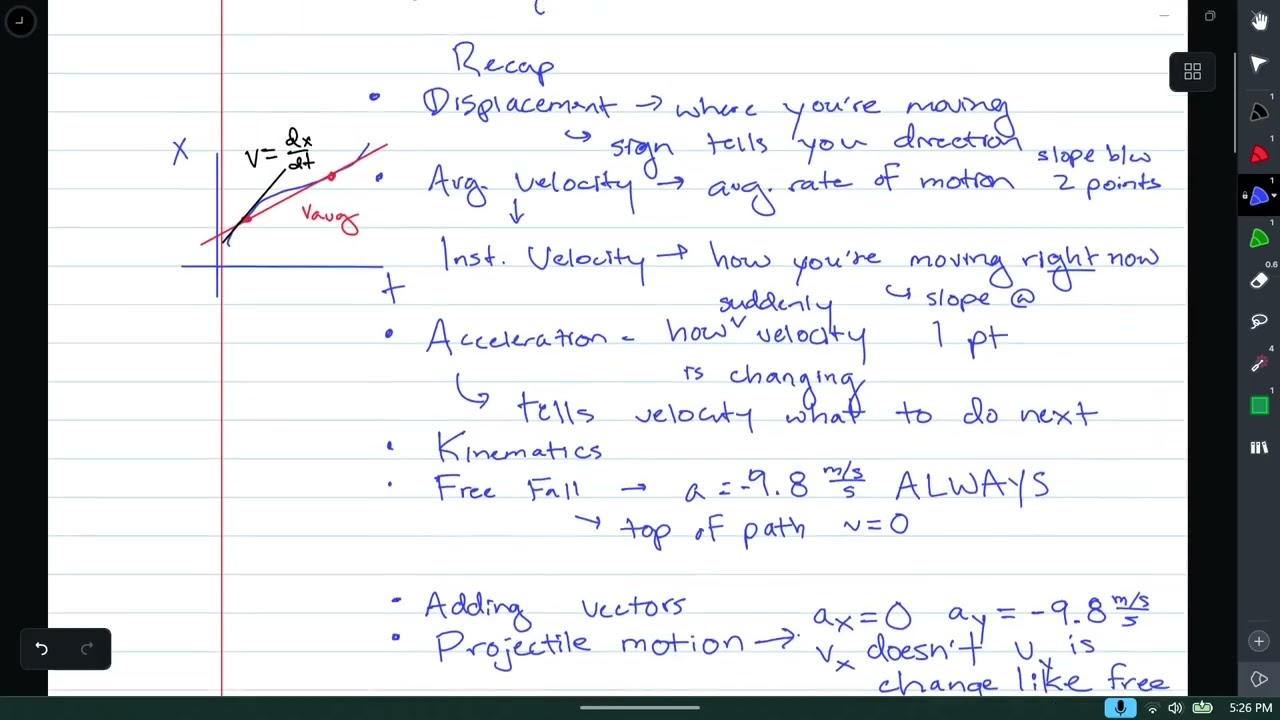 Recap
• Displacement → where you're moving
↳ sign tells you direction
X
V = dx/dt
vavg
t
• Avg. Velocity → avg. rate of motion
slope b/w
2 points
↓
Inst. Velocity → how you're moving right now
↳ slope @
1 pt
• Acceleration - how suddenly velocity
is changing
↳ tells velocity what to do next
• Kinematics
• Free Fall → a = -9.8 m/s/s ALWAYS
→ top of path v = 0
• Adding vectors
• Projectile motion →
ax = 0 ay = -9.8 m/s/s
vx doesn't vy is
change like free
1
1
1
1
0.6
4
1
5:26 PM